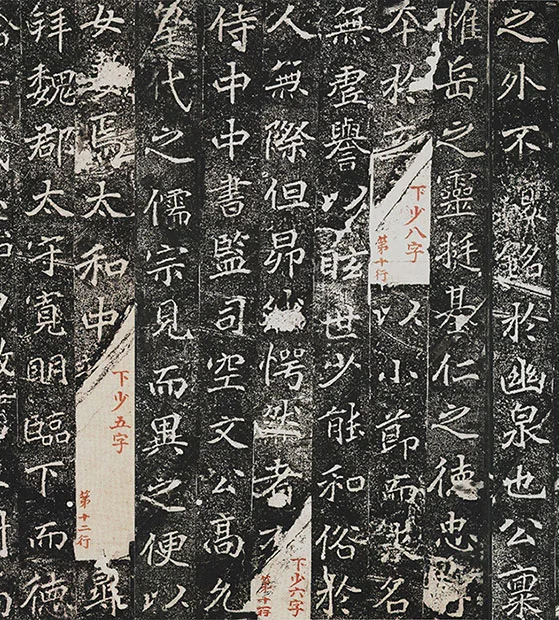 之外不銘於幽泉也公稟
惟岳之靈挺基仁之德忠
本於立
下少八字
第十行
以小節而求名
無虛譽以眩世少能和俗於
人無際但昴然愕然者
下少六字
第十一行
侍中中書監司空文公高允
皇代之儒宗見而異之便以
女女焉太和中
下少五字
第十二行
尋
拜魏郡太守寬明臨下而德